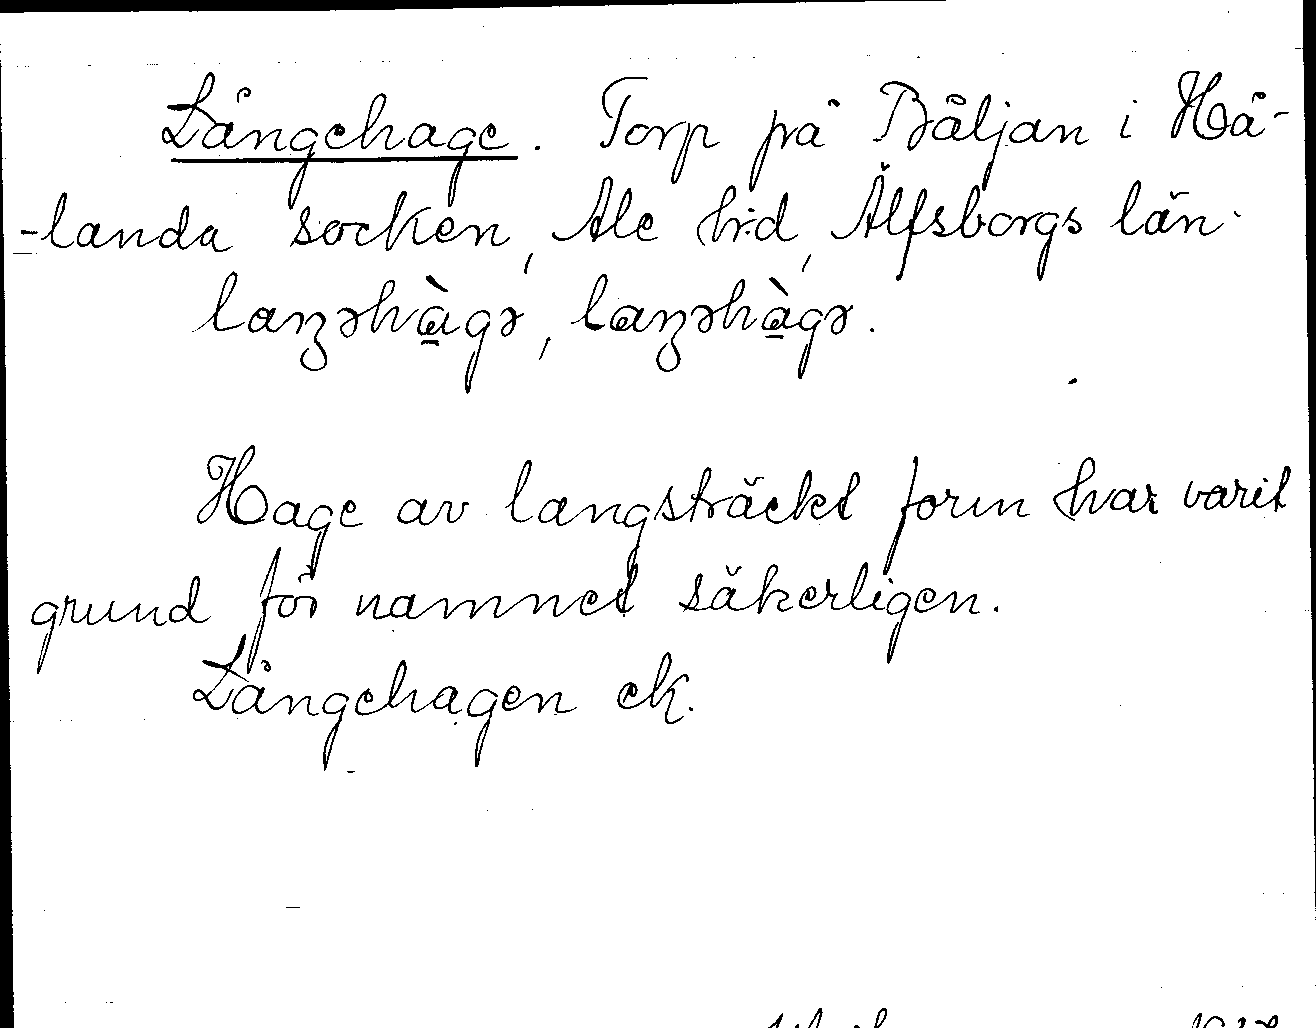 Långehage. Torp på Båljan i Hå-
-landa socken, Ale h:d, Älfsborgs län.
laŋəhàgə, laŋəhàgə.
Hage av langsträckt form har varit
grund för namnet säkerligen.
Långehagen ek.